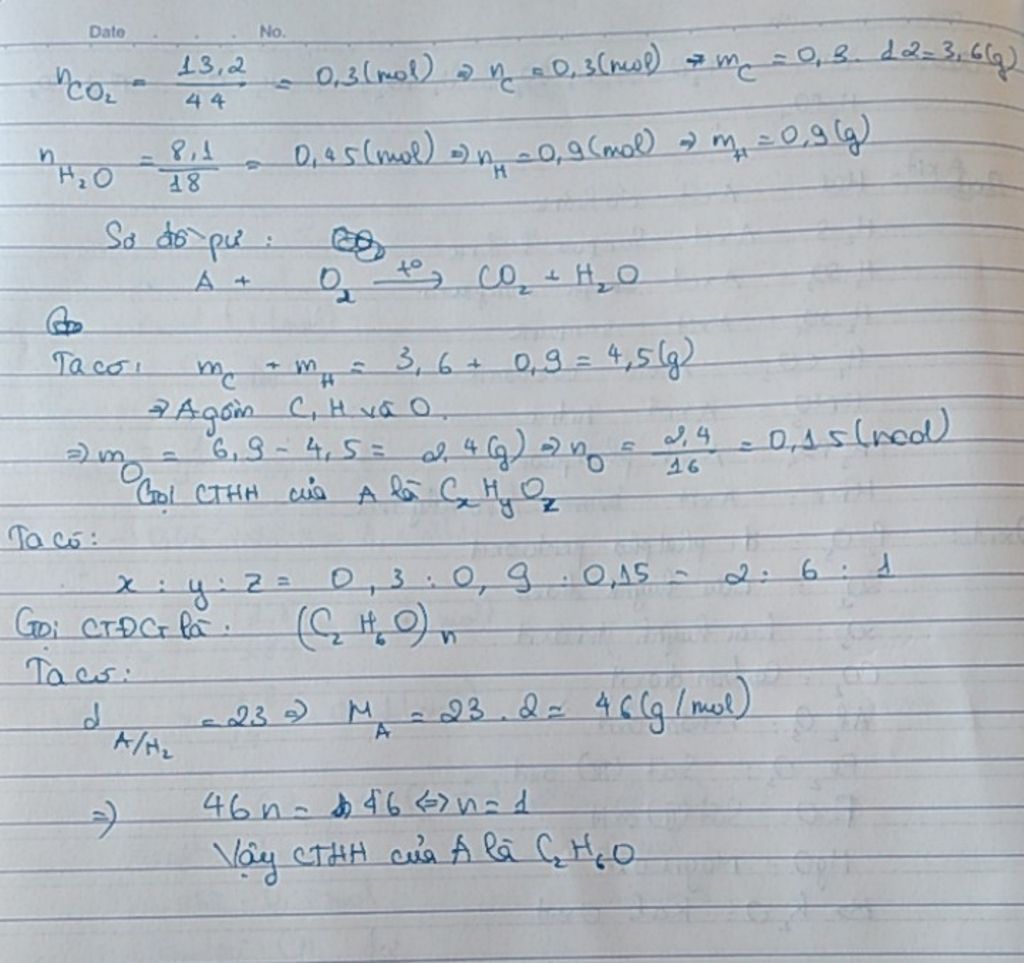 Date . . . No.
nCO₂ = 13,2/44 = 0,3(mol) ⇒ nC = 0,3(mol) ⇒ mC = 0,3. 12=3,6(g)
nH₂O = 8,1/18 = 0,45(mol) ⇒ nH = 0,9(mol) ⇒ mH = 0,9(g)
Sơ đồ pư :
A + O₂ t°→ CO₂ + H₂O
Ta có: mC + mH = 3,6 + 0,9 = 4,5(g)
⇒ A gồm C, H và O.
⇒ mO = 6,9 - 4,5 = 2,4(g) ⇒ nO = 2,4/16 = 0,15(mol)
Gọi CTHH của A là CxHyOz
Ta có:
x : y : z = 0,3 : 0,9 : 0,15 = 2 : 6 : 1
Gọi CTĐG là : (C₂H₆O)n
Ta có:
d A/H₂ = 23 ⇒ MA = 23 . 2 = 46(g/mol)
⇒ 46n = 46 ⇔ n = 1
Vậy CTHH của A là C₂H₆O